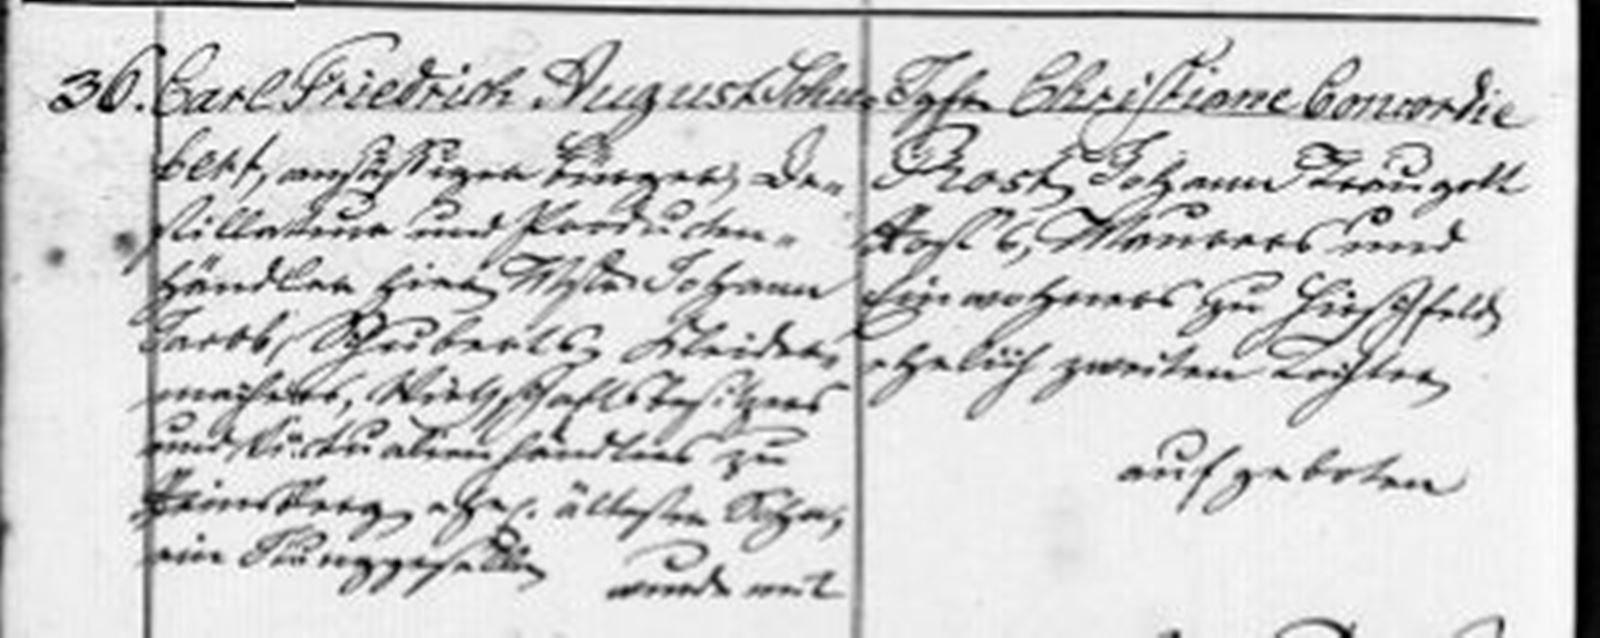 36. Carl Friedrich August Schu-
bert, ansässiger Bürger, De-
stillateur und Producten-
händler hier, Mstr. Johann
Jacob Schuberts, Kleider-
machers, Wirthschaftsbesitzers
und Victualienhändlers zu
Reinsberg, ehel. ältester Sohn,
ein Junggeselle, wurde mit
Jgfr. Christiane Concordie
Rost, Johann Traugott
Rost's, Maurers und
Einwohners zu Hirschfeld,
ehelich zweiten Tochter,
aufgeboten